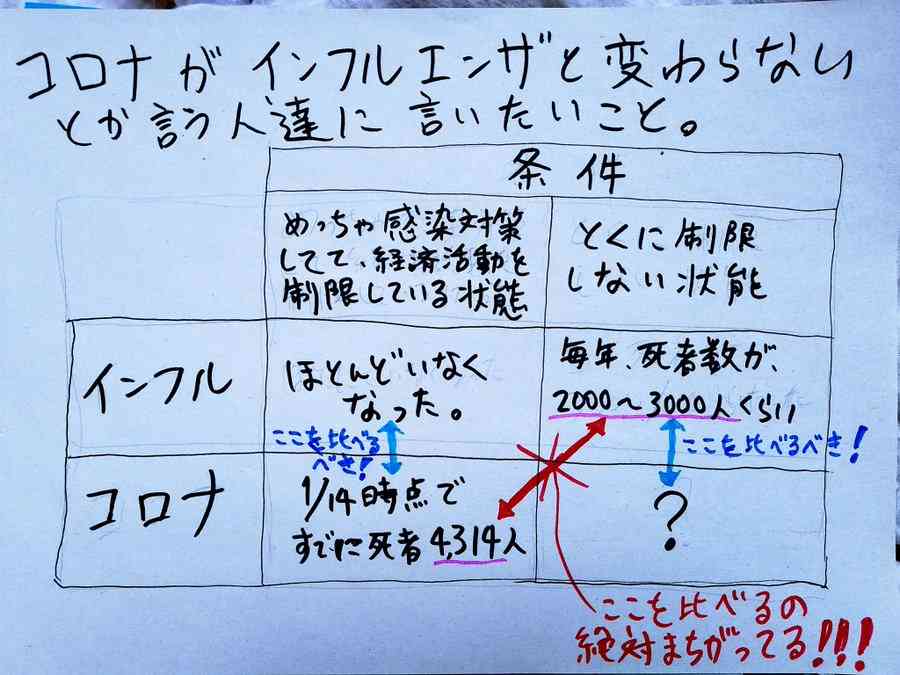 コロナが インフルエンザと変わらない
とか言う人達に 言いたいこと。
条件
めっちゃ感染対策
してて、経済活動を
制限している状態
とくに制限
しない状態
インフル
ほとんどいなく
なった。
毎年、死者数が、
2000〜3000人くらい
ここを比べる
べき!
ここを比べるべき!
コロナ
1/14時点で
すでに死者4,314人
?
ここを比べるの
絶対まちがってる!!!